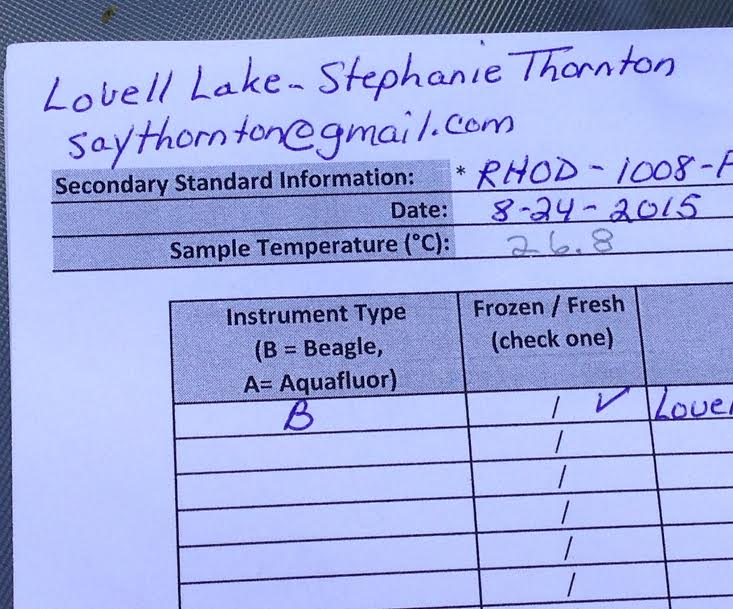 Lovell Lake - Stephanie Thornton
saythornton@gmail.com
Secondary Standard Information: * RHOD-1008-F
Date: 8-24-2015
Sample Temperature (°C): 26.8
Instrument Type Frozen / Fresh
(B = Beagle, (check one)
A= Aquafluor)
B / ✓ Lovel
/
/
/
/
/